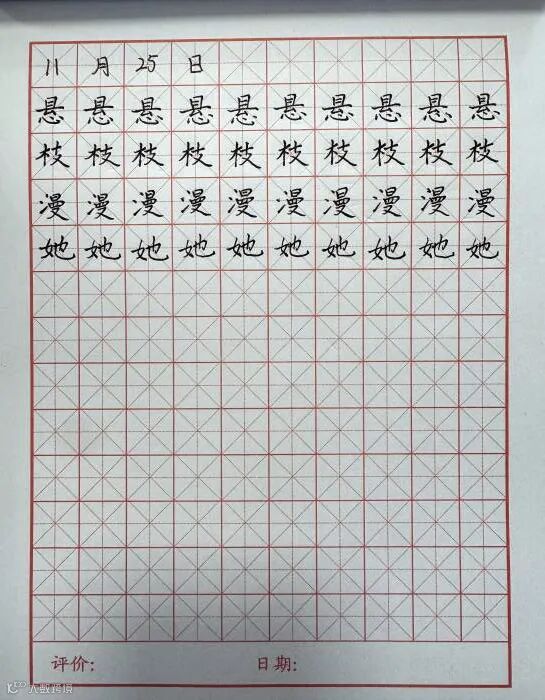 11月25日
悬悬悬悬悬悬悬悬悬悬
枝枝枝枝枝枝枝枝枝枝
漫漫漫漫漫漫漫漫漫漫
她她她她她她她她她她
评价: 日期:
大数跨境